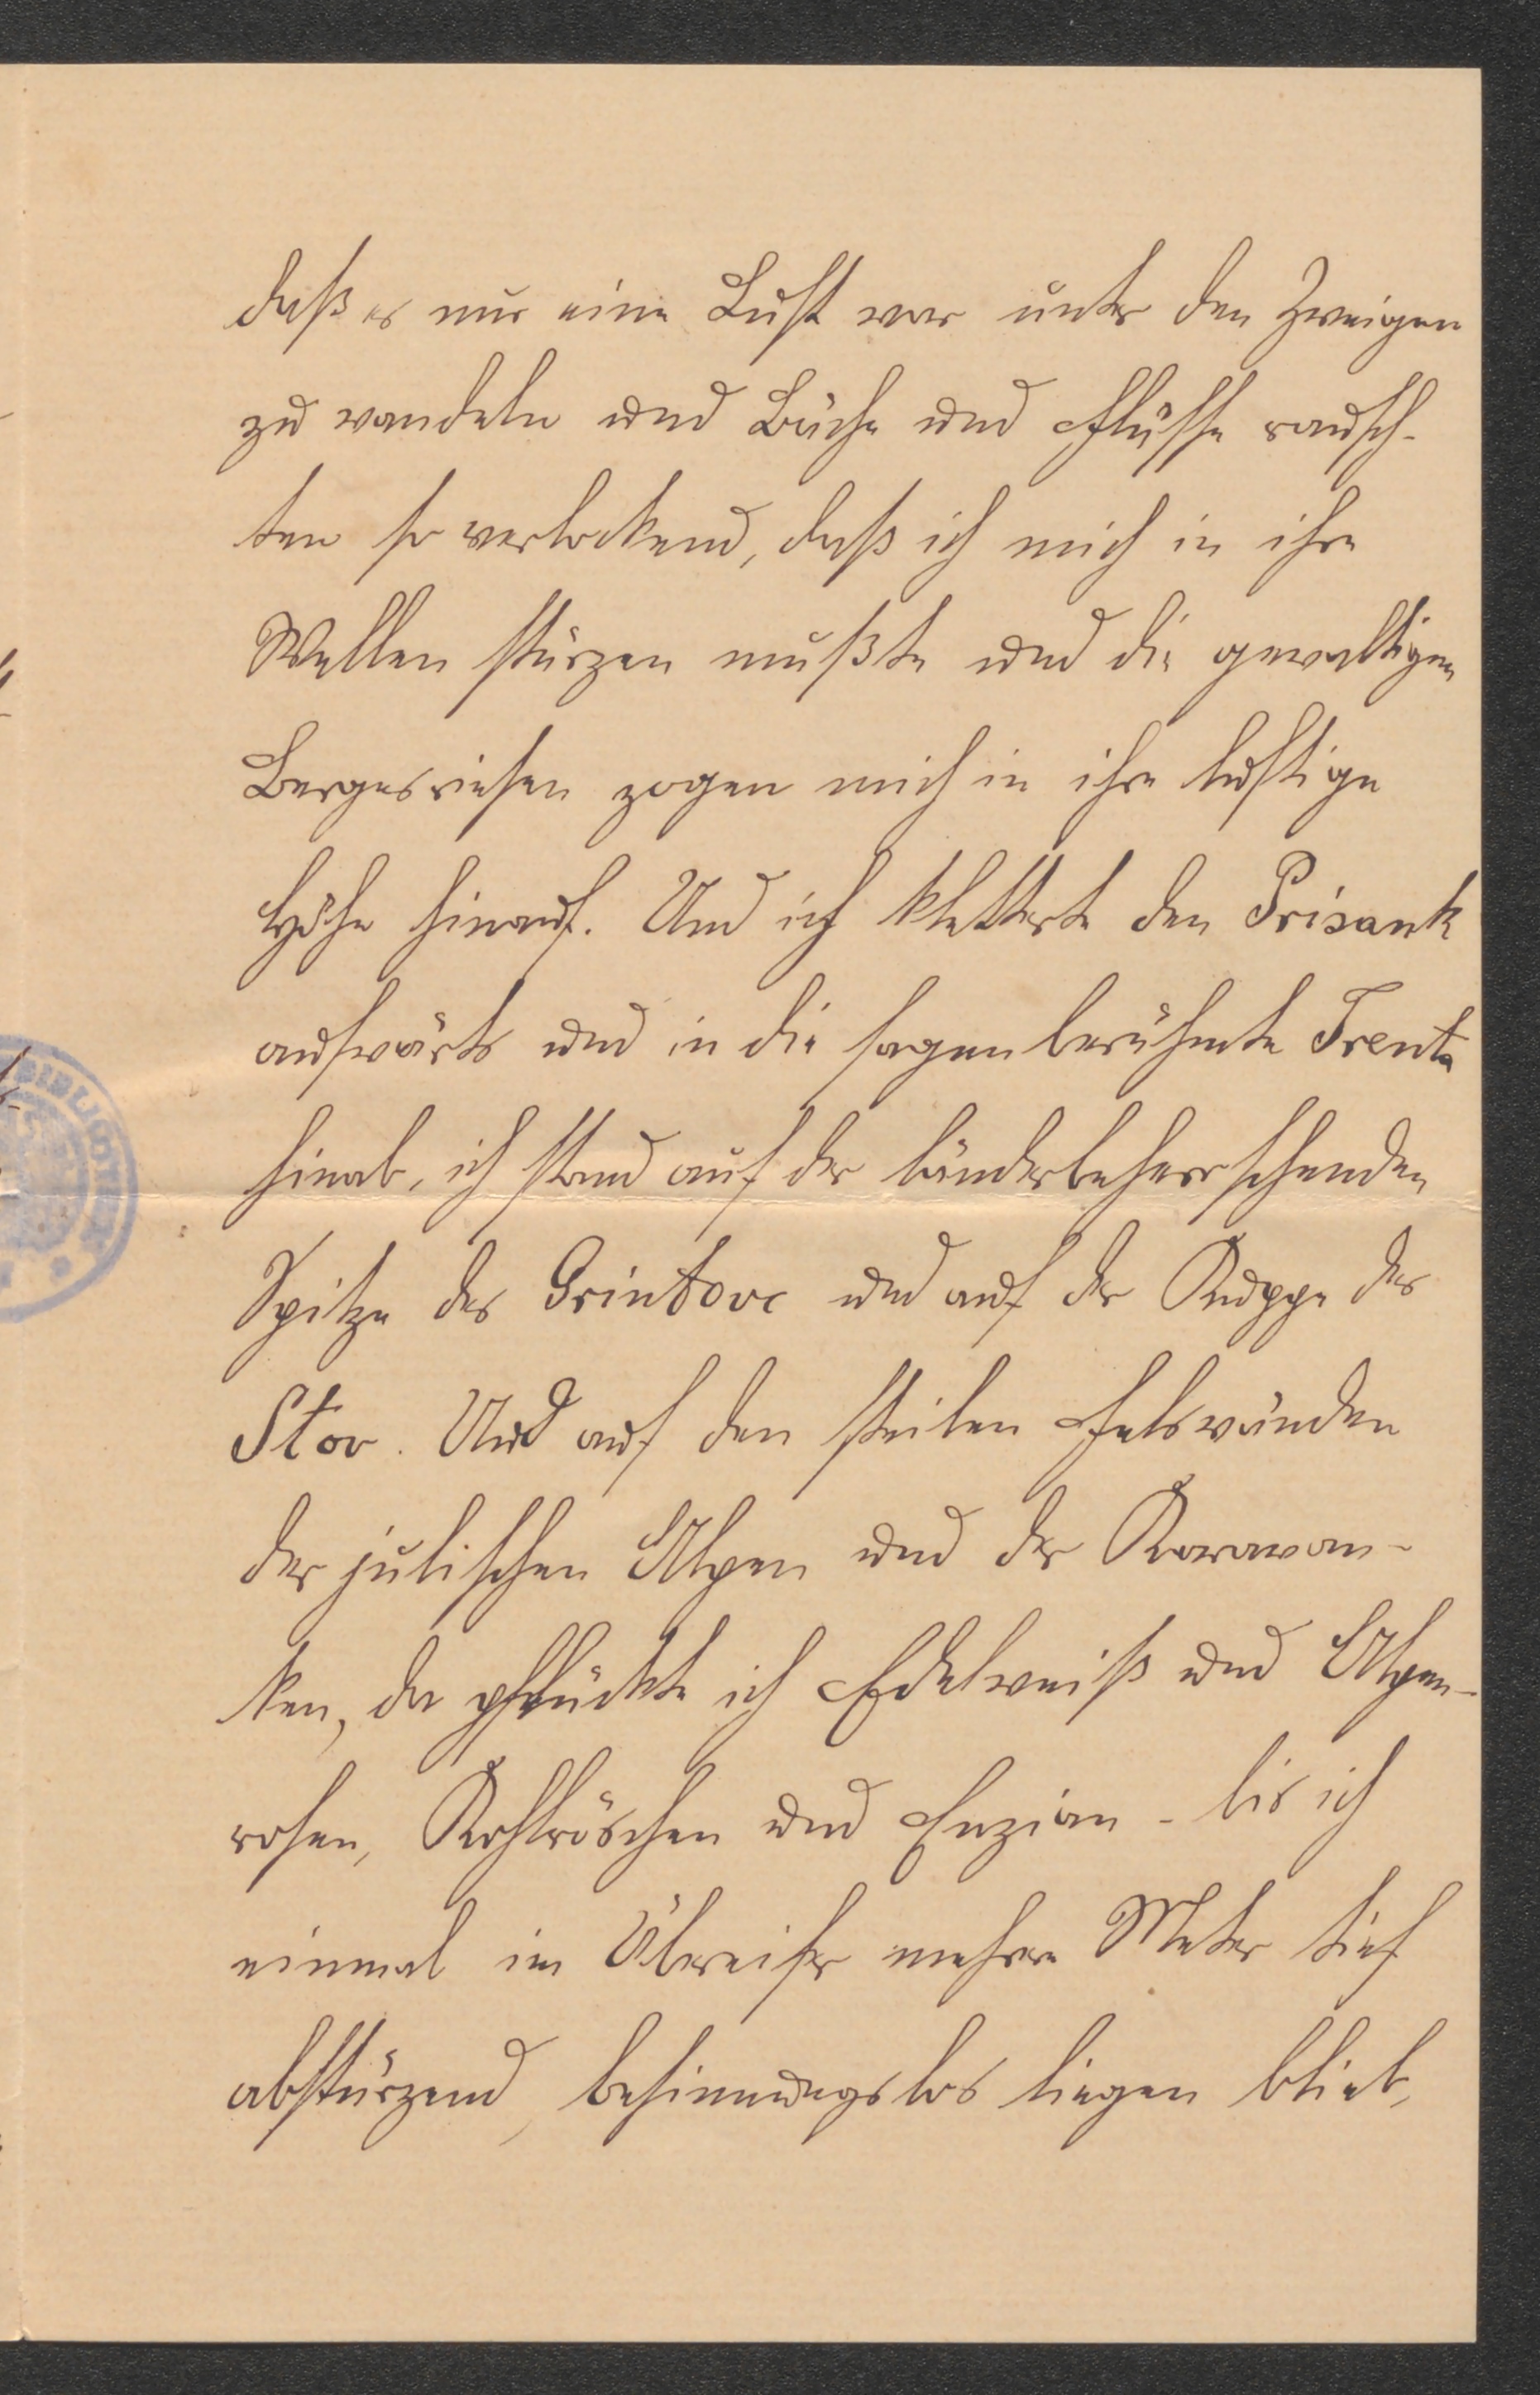 daß es nur eine Lust war unter den Zweigen
zu wandeln und Bäche und Flüsse rausch-
ten so verlockend, daß ich mich in ihre
Wellen stürzen mußte und die gewaltigen
Bergesriesen zogen mich in ihre luftige
Höhe hinauf. Und ich kletterte den Prisank
aufwärts und in die sagenberühmte Trenta
hinab, ich stand auf der länderbeherrschenden
Spitze des Grintovc und auf der Kuppe des
Stov. Und auf den steilen Felswänden
der julischen Alpen und der Karawan-
ken, da pflückte ich Edelweiß und Alpen-
rosen, Kohlröschen und Enzian - bis ich
einmal im Übereifer mehrere Meter tief
abstürzend, besinnungslos liegen blieb,
BIBLIOTHEK